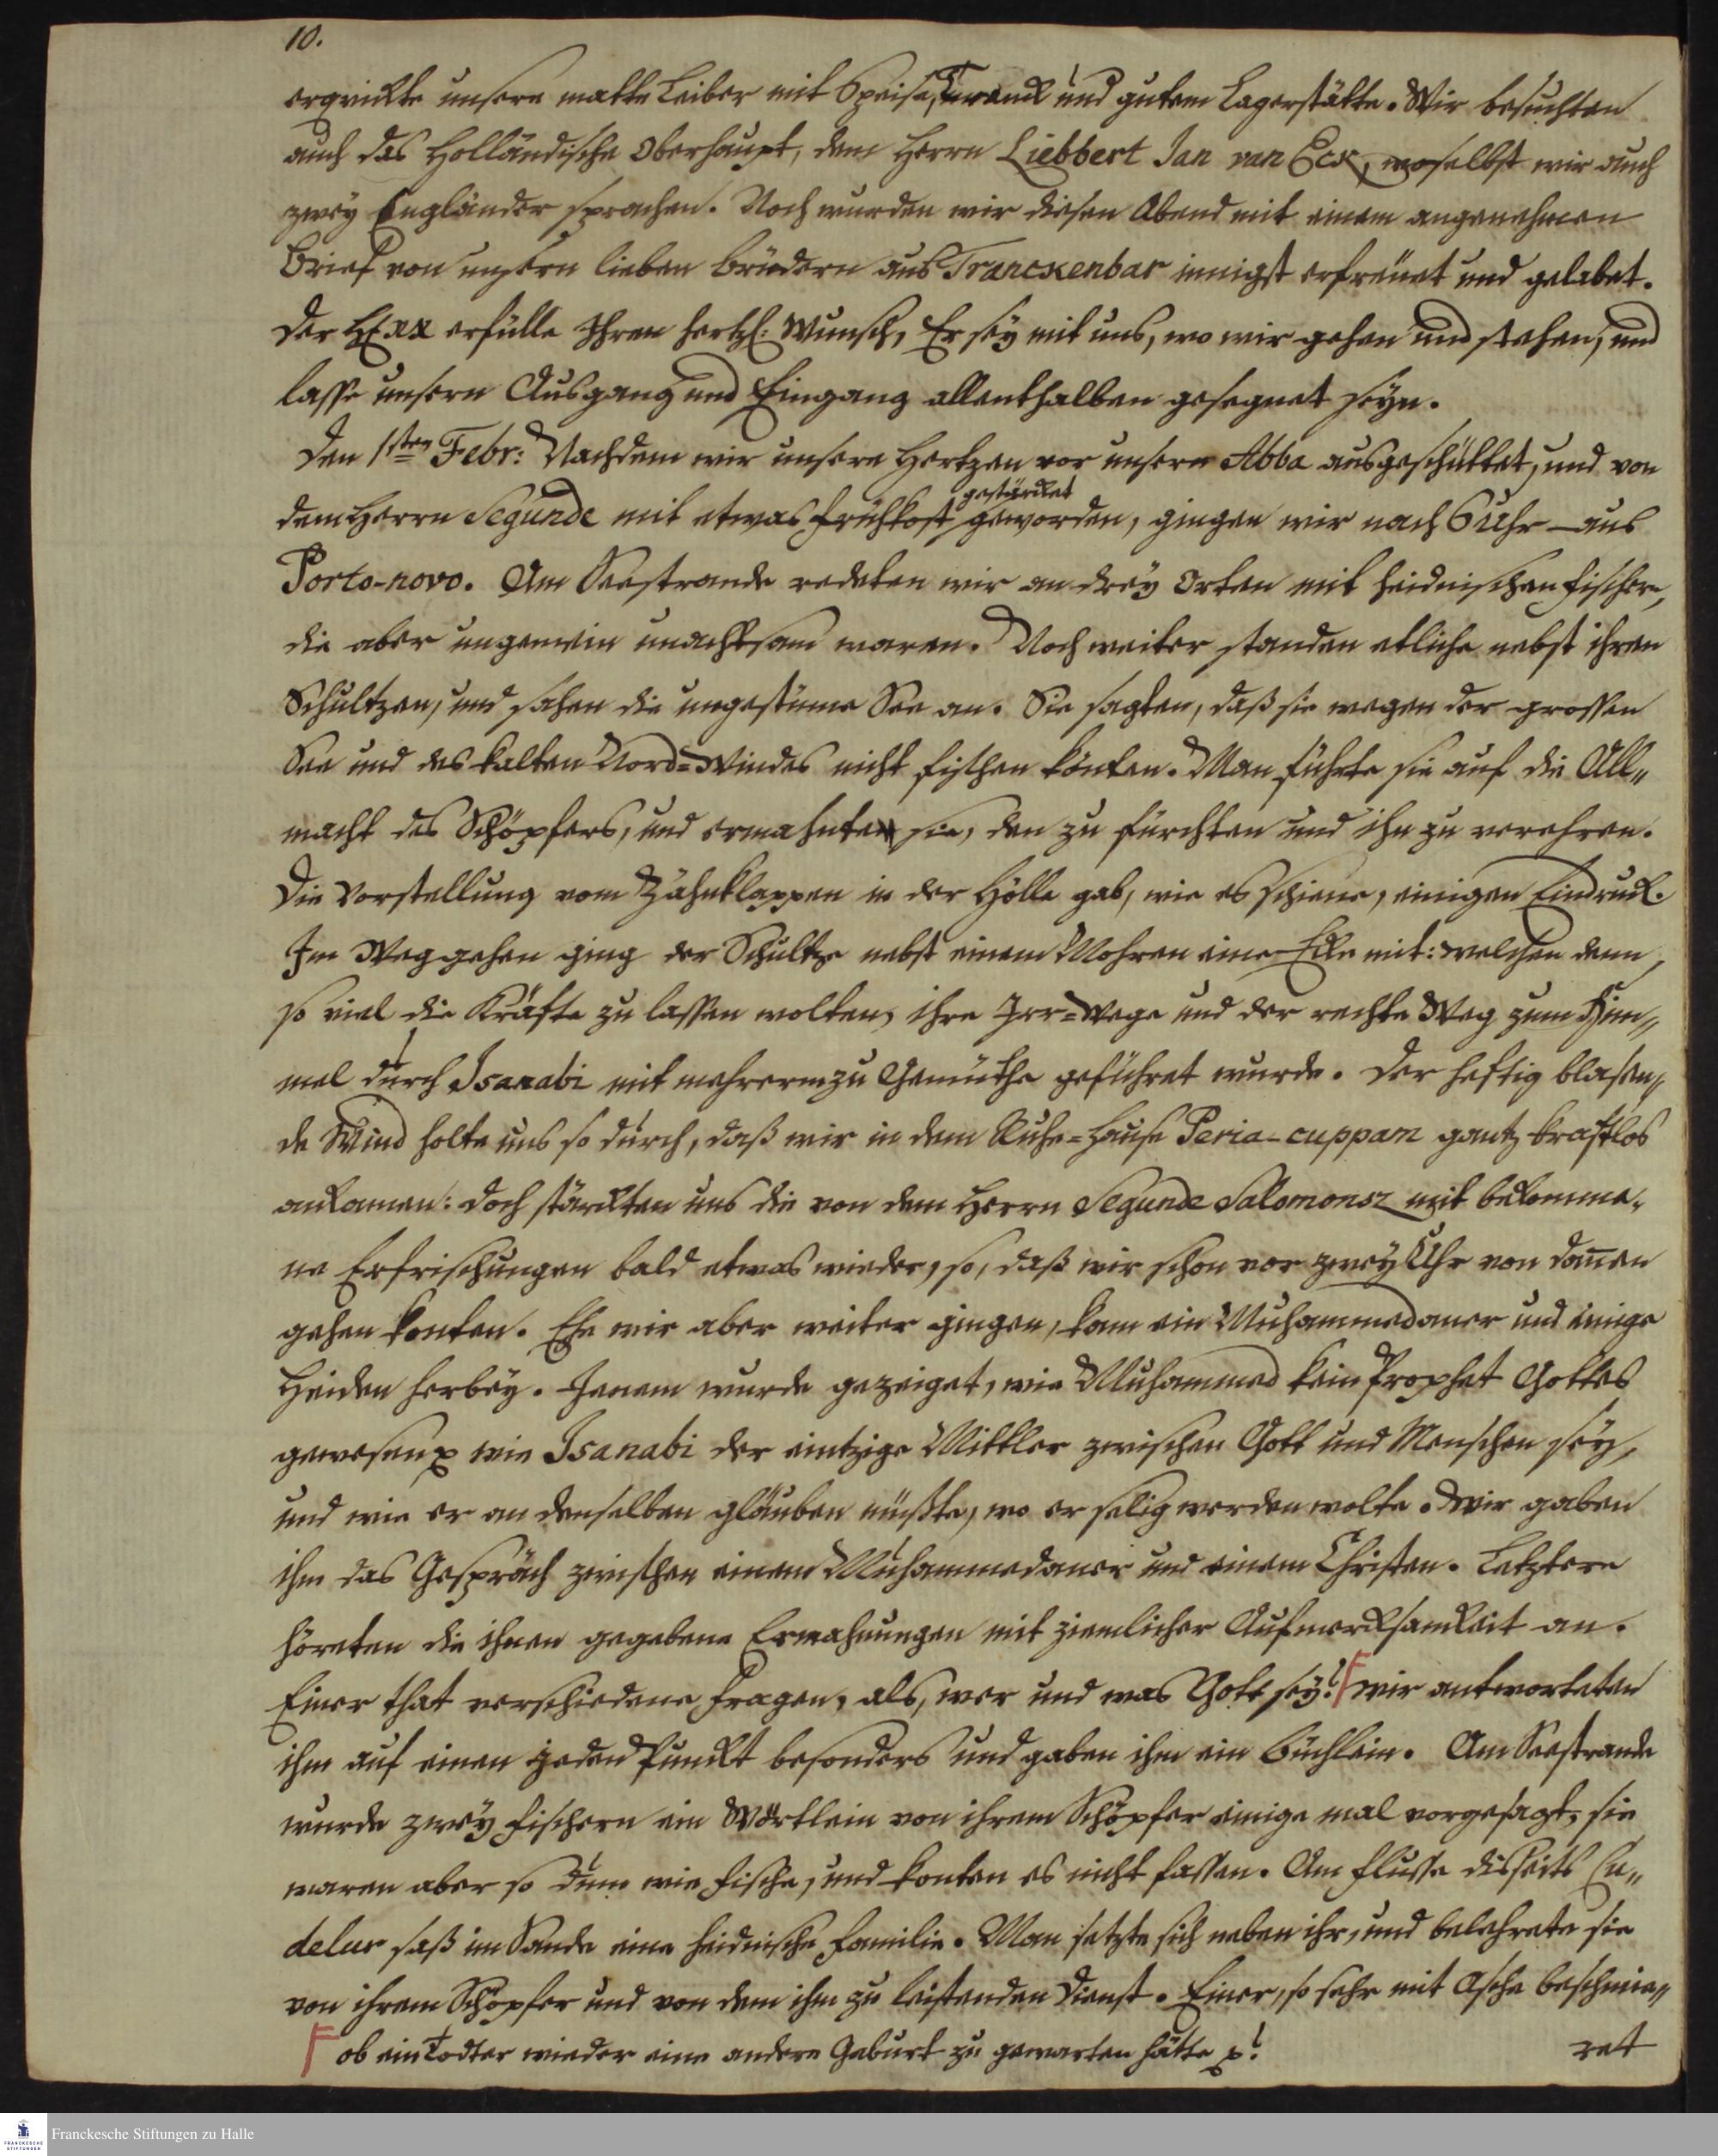 10.
erquickte unsere matte Leiber mit Speise, Tranck und gutem Lagerstätte. Wir besuchten
auch das Holländische Oberhaupt, dem Herrn Liebbert Jan van Eck, woselbst wir auch
zwey Engländer sprachen. Noch wurden wir diesen Abend mit einem angenehmen
Brief von unsern lieben Brüdern aus Tranckenbar innigst erfreuet und gelabet.
Der HErr erfülle Ihren hertzl: Wunsch, Er sey mit uns, wo wir gehen und stehen, und
lasse unsern Ausgang und Eingang allenthalben gesegnet seyn.
Den 1sten Febr: Nachdem wir unsere Hertzen vor unsern Abba ausgeschüttet, und von
dem Herrn Segunde mit etwas Frühkost gestärcket geworden, gingen wir nach 6 Uhr aus
Porto-novo. Am Seestrande redeten wir an drey Orten mit heidnischen Fischern,
die aber ungemein unachtsam waren. Noch weiter standen etliche nebst ihren
Schultzen, und sahen die ungestüme See an. Sie sagten, daß sie wegen der grossen
See und des kalten Nord=Windes nicht fischen könten. Man führte sie auf die All„
macht des Schöpfers, und ermahnte sie, den zu fürchten und ihn zu verehren.
Die Vorstellung vom Zähnklappen in der Hölle gab, wie es schiene, einigen Eindruck.
Im Weggehen ging der Schultze nebst einem Mohren eine Ecke mit: welchen denn,
so viel die Kräfte zu lassen wolten, ihre Irr=Wege und der rechte Weg zum Him„
mel durch Isanabi mit mehrerm zu Gemüthe geführet wurde. Der heftig blasen„
de Wind holte uns so durch, daß wir in dem Ruhe=Hause Peria-cuppam gantz kraftlos
ankamen: Doch stärckten uns die von dem Herrn Segunde Salomonsz mit bekomme„
ne Erfrischungen bald etwas wieder, so, daß wir schon vor zwey Uhr von dannen
gehen konten. Ehe wir aber weiter gingen, kam ein Muhammedaner und einige
Heiden herbey. Jenem wurde gezeiget, wie Muhammed kein Prophet Gottes
gewesen, wie Isanabi der eintzige Mittler zwischen Gott und Menschen sey,
und wie er an denselben gläuben müßte, wo er selig werden wolte. Wir gaben
ihm das Gespräch zwischen einem Muhammedaner und einem Christen. Letztere
höreten die ihnen gegebene Ermahnungen mit ziemlicher Aufmercksamkeit an.
Einer that verschiedene Fragen, als, wer und was Gott sey? F wir antworteten
ihm auf einen jeden Punckt besonders und gaben ihm ein Büchlein. Am Seestrande
wurde zwey Fischern ein Wörtlein von ihrem Schöpfer einige mal vorgesagt, sie
waren aber so dum wie Fische, und konten es nicht fassen. Am Flusse disseits Cu„
delur saß im Sande eine heidnische Familie. Man setzte sich neben ihr, und belehrete sie
von ihrem Schöpfer und von dem ihm zu leistenden Dienst. Einer, so sehr mit Asche beschmie„
F ob ein Todter wieder eine andere Geburt zu gewarten hätte p?
ret
Franckesche Stiftungen zu Halle